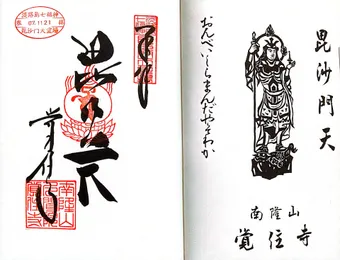 毘沙門天
南隆山
覚住寺
おんべいしらまんだやそわか
奉拝
毘沙門天
覚住寺
淡路島七福神
07.11.21
毘沙門天霊場
南隆山
覚住寺